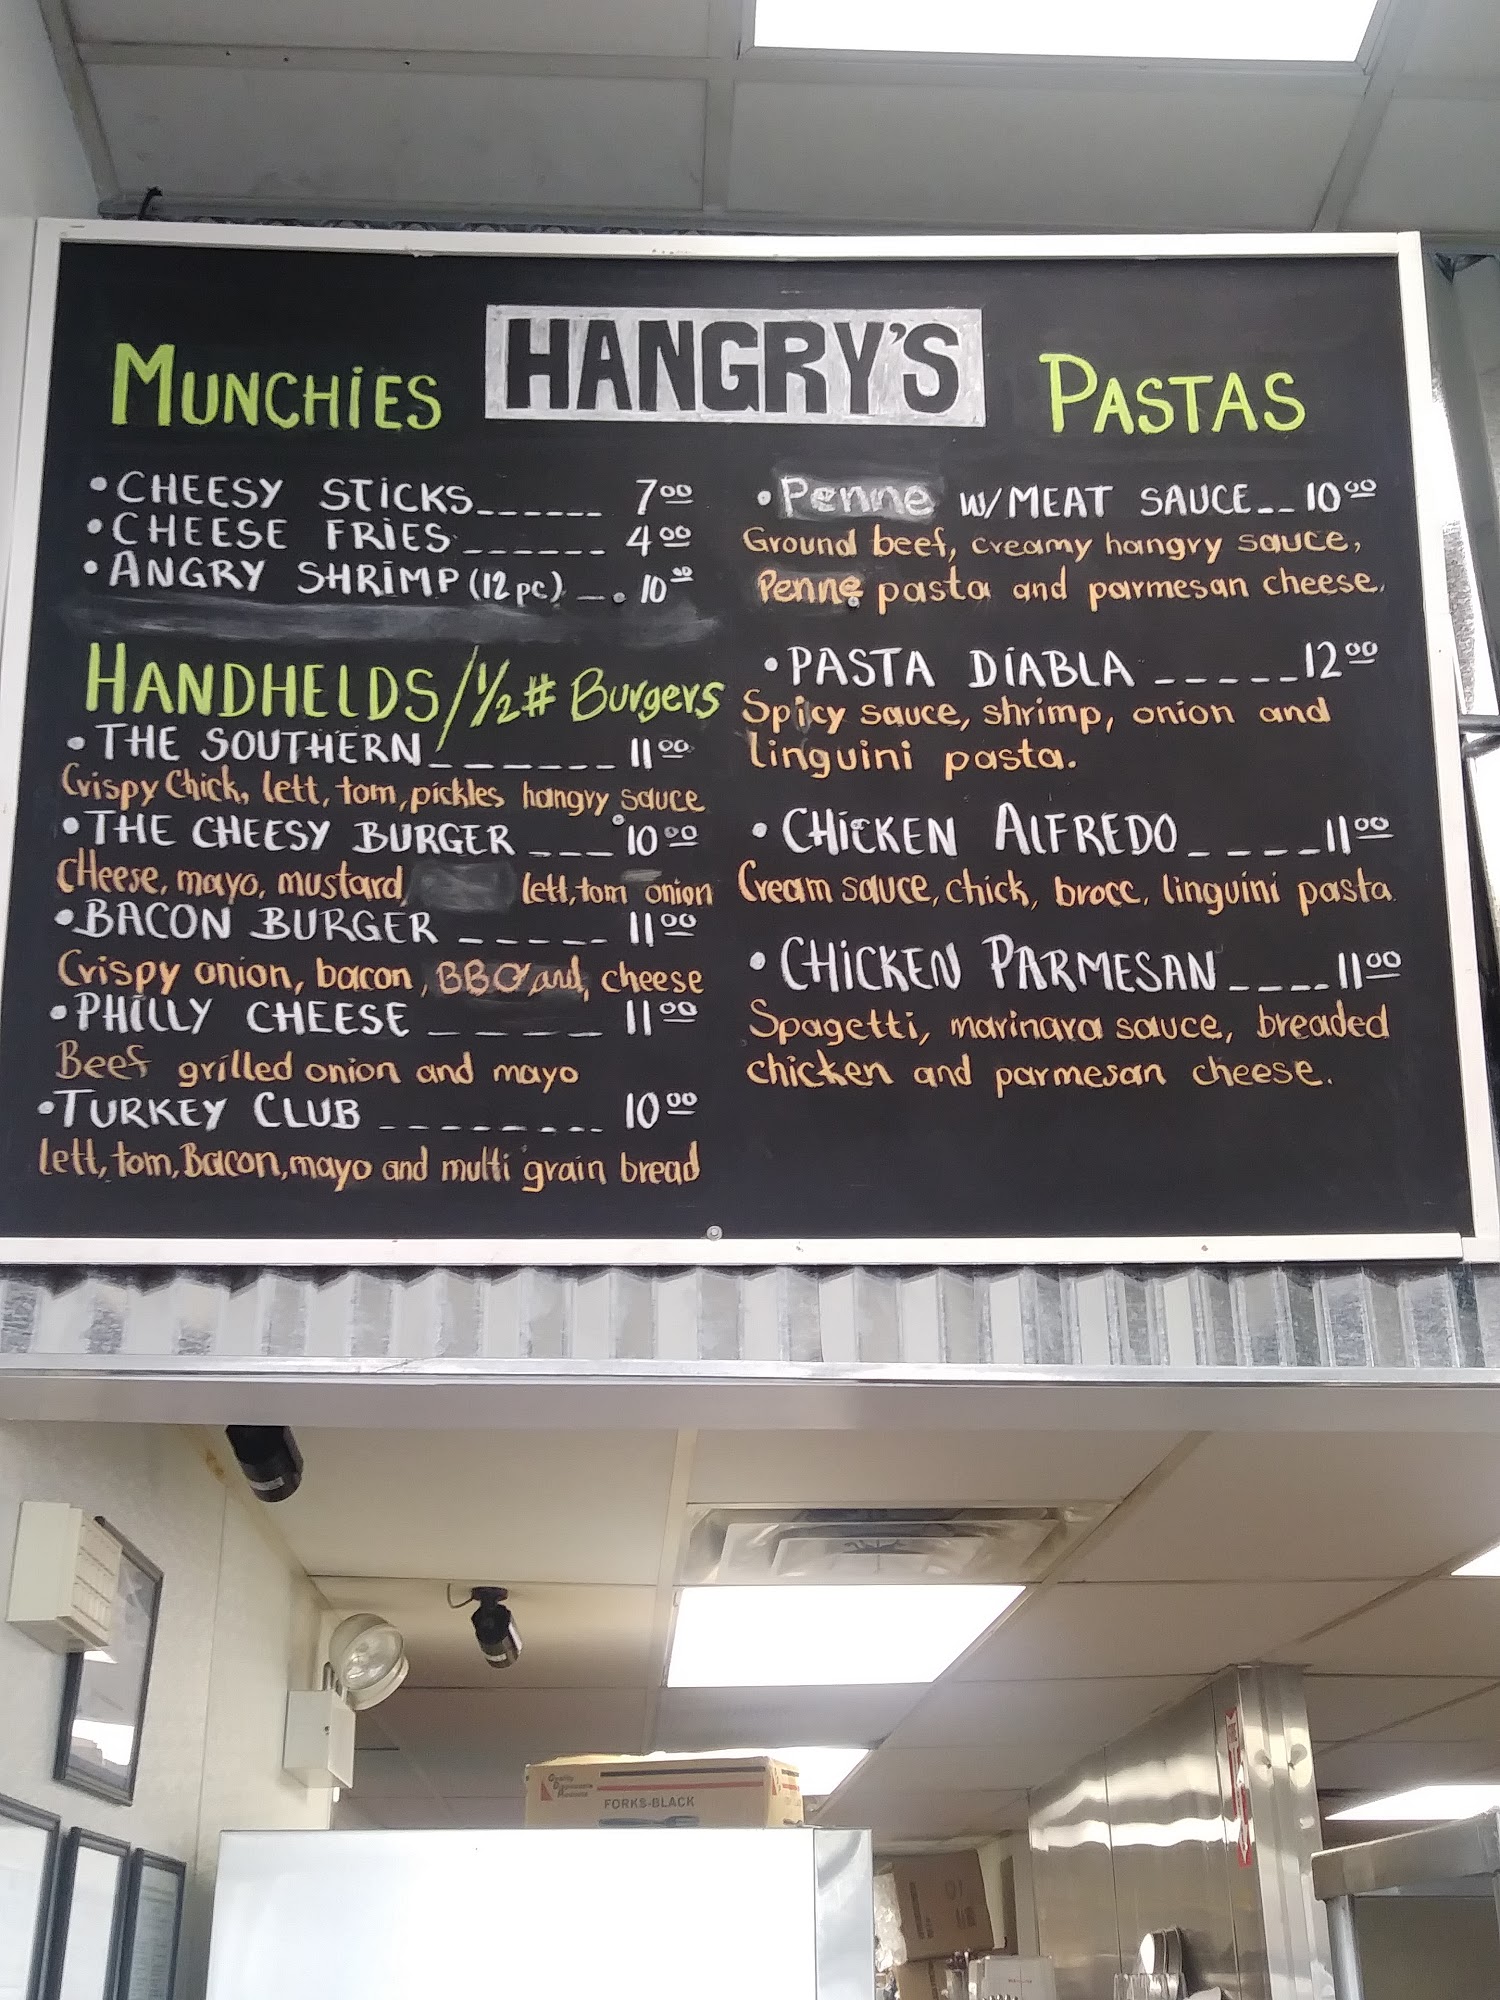 HANGRY'S
MUNCHiES
• CHEESY STiCKS______ 7 00
• CHEESE FRiES______ 4 00
• ANGRY SHRiMP (12 pc) _. 10 00
HANDHELDS / 1/2 # Burgers
• THE SOUTHERN_______ 11 00
Crispy Chick, lett, tom, pickles hangry sauce
• THE CHEESY BURGER ___ 10 00
CHeese, mayo, mustard, lett, tom onion
• BACON BURGER _____ 11 00
Crispy onion, bacon, BBQ and, cheese
• PHILLY CHEESE _____ 11 00
Beef grilled onion and mayo
• TURKEY CLUB ________ 10 00
lett, tom, Bacon, mayo and multi grain bread
PASTAS
• Penne w/MEAT SAUCE__ 10 00
Ground beef, creamy hangry sauce,
Penne pasta and parmesan cheese.
• PASTA DiABLA _____ 12 00
Spicy sauce, shrimp, onion and
linguini pasta.
• CHiCKEN ALFREDO ____ 11 00
Cream sauce, chick, brocc, linguini pasta
• CHiCKEN PARMESAN ____ 11 00
Spagetti, marinara sauce, breaded
chicken and parmesan cheese.
FORKS-BLACK